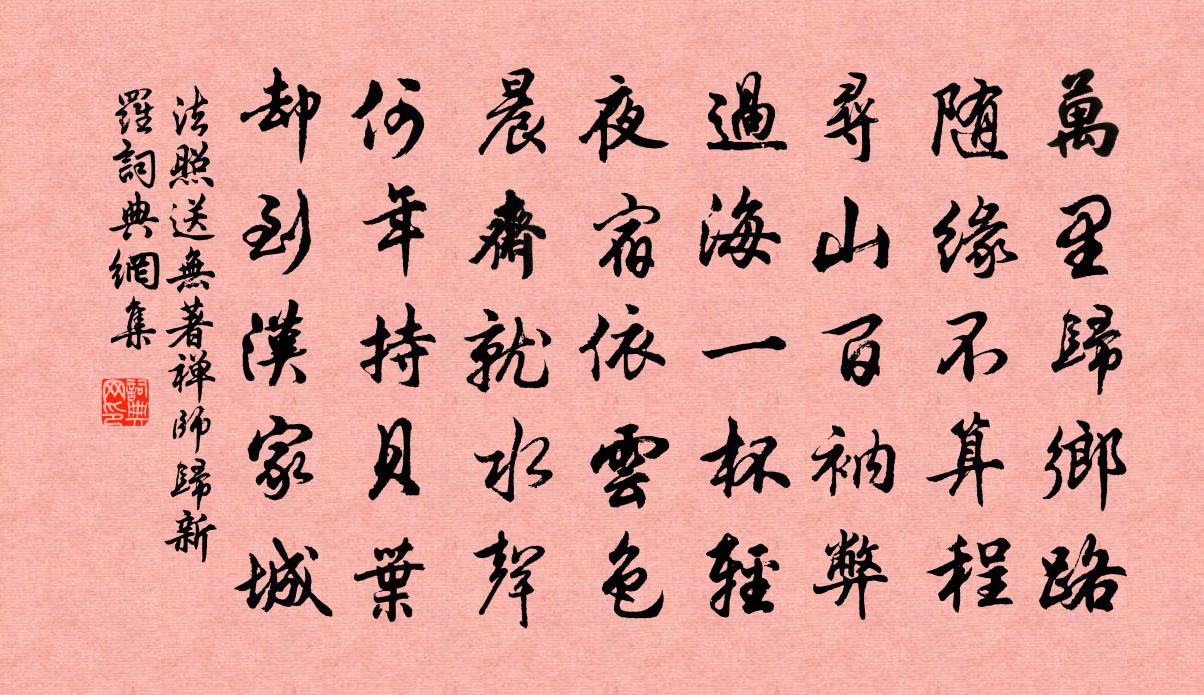 萬里歸鄉路
随緣不算程
尋山百衲弊
過海一杯輕
夜宿依雲色
晨齋就水聲
何年持貝葉
却到漢家城
法照送無著禅師歸新
羅詞典網集
詞典
网印